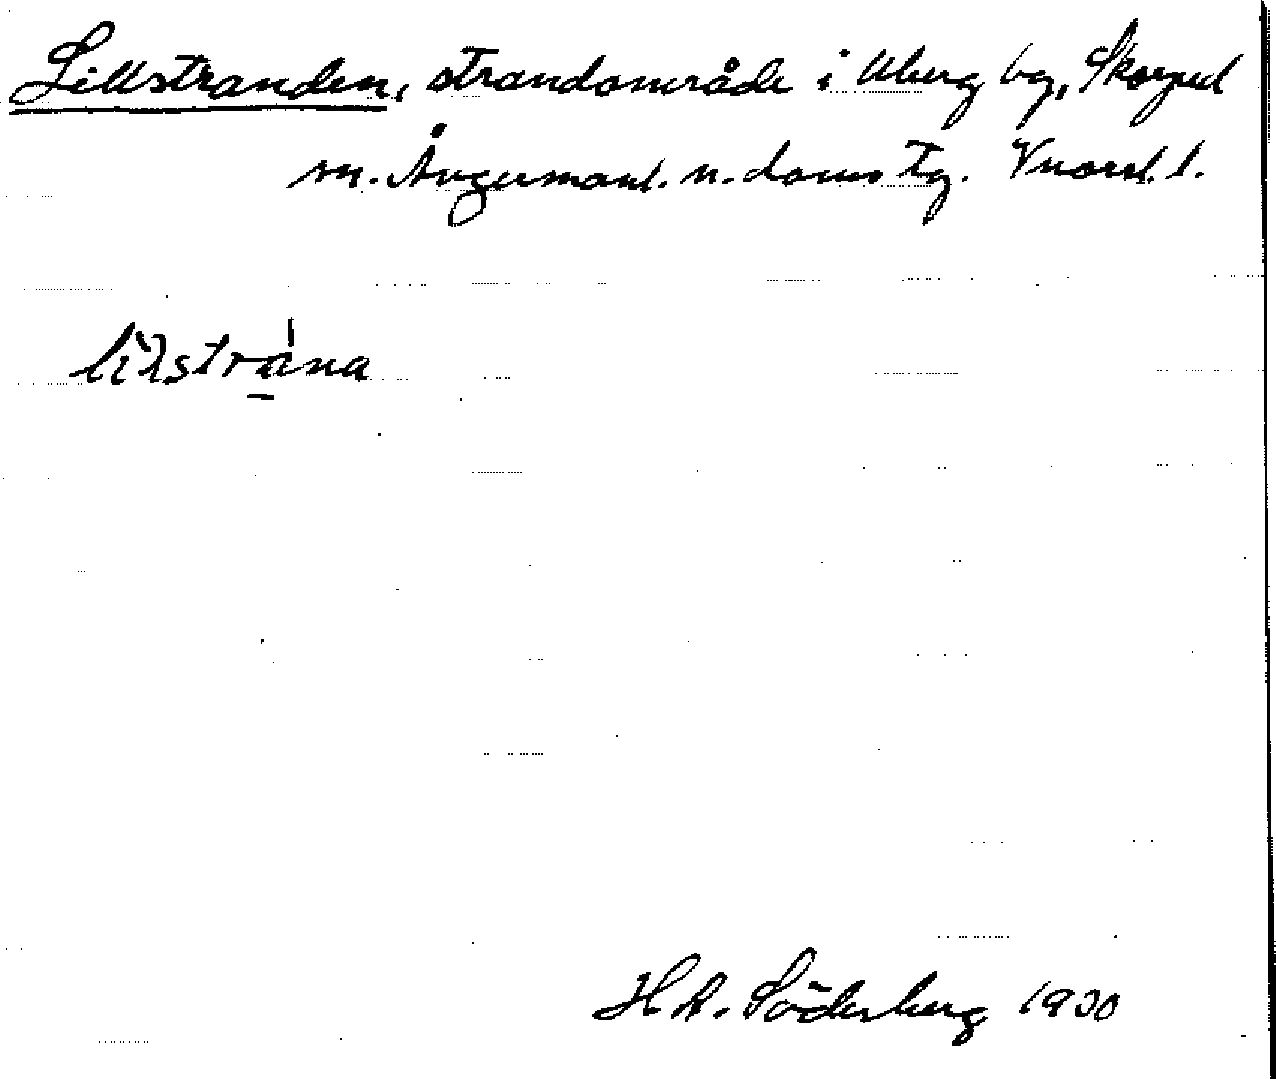 Lillstranden, strandområde i Uberg by, Skorped
sn. Ångermanl. n. doms Tg. Vnorrl. l.
lilstrána
H A. Söderberg 1930